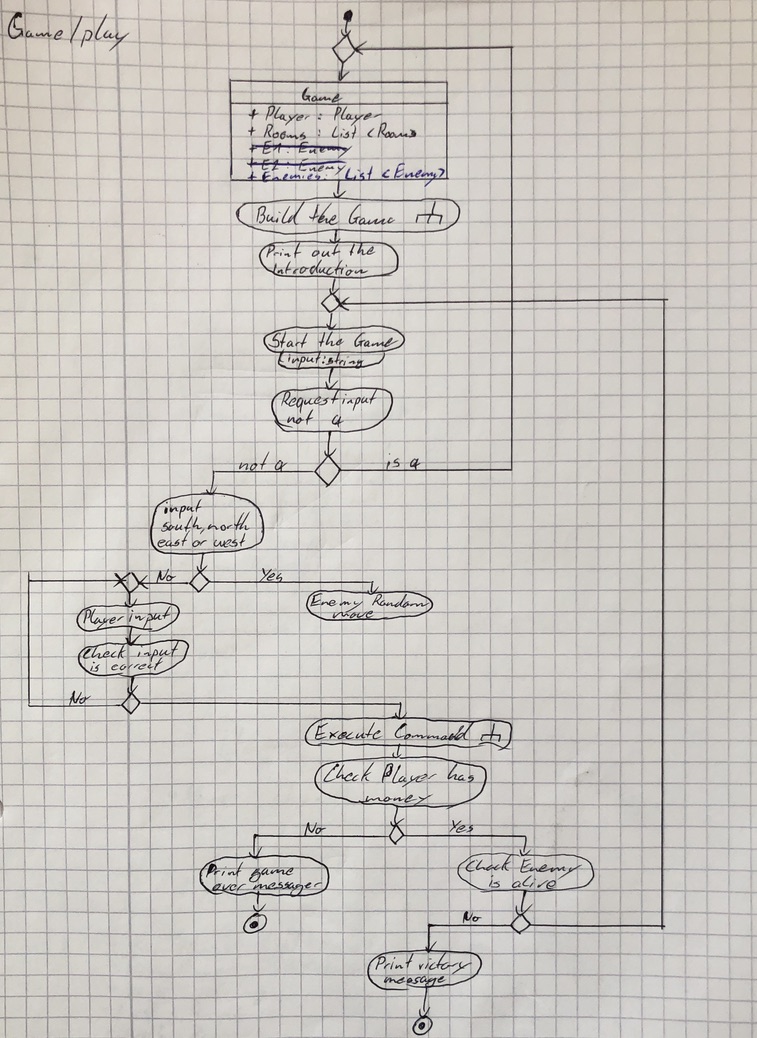 Game/play
Game
+ Player : Player
+ Rooms : List <Room>
+ E1 : Enemy
+ E2 : Enemy
+ Enemies: List <Enemy>
Build the Game
Print out the
Introduction
Start the Game
input:string
Request input
not q
not q
is q
input
south, north
east or west
No
Yes
Player input
Enemy Random
move
Check input
is correct
No
Execute Command
Check Player has
money
No
Yes
Print game
over message
Check Enemy
is alive
No
Print victory
message